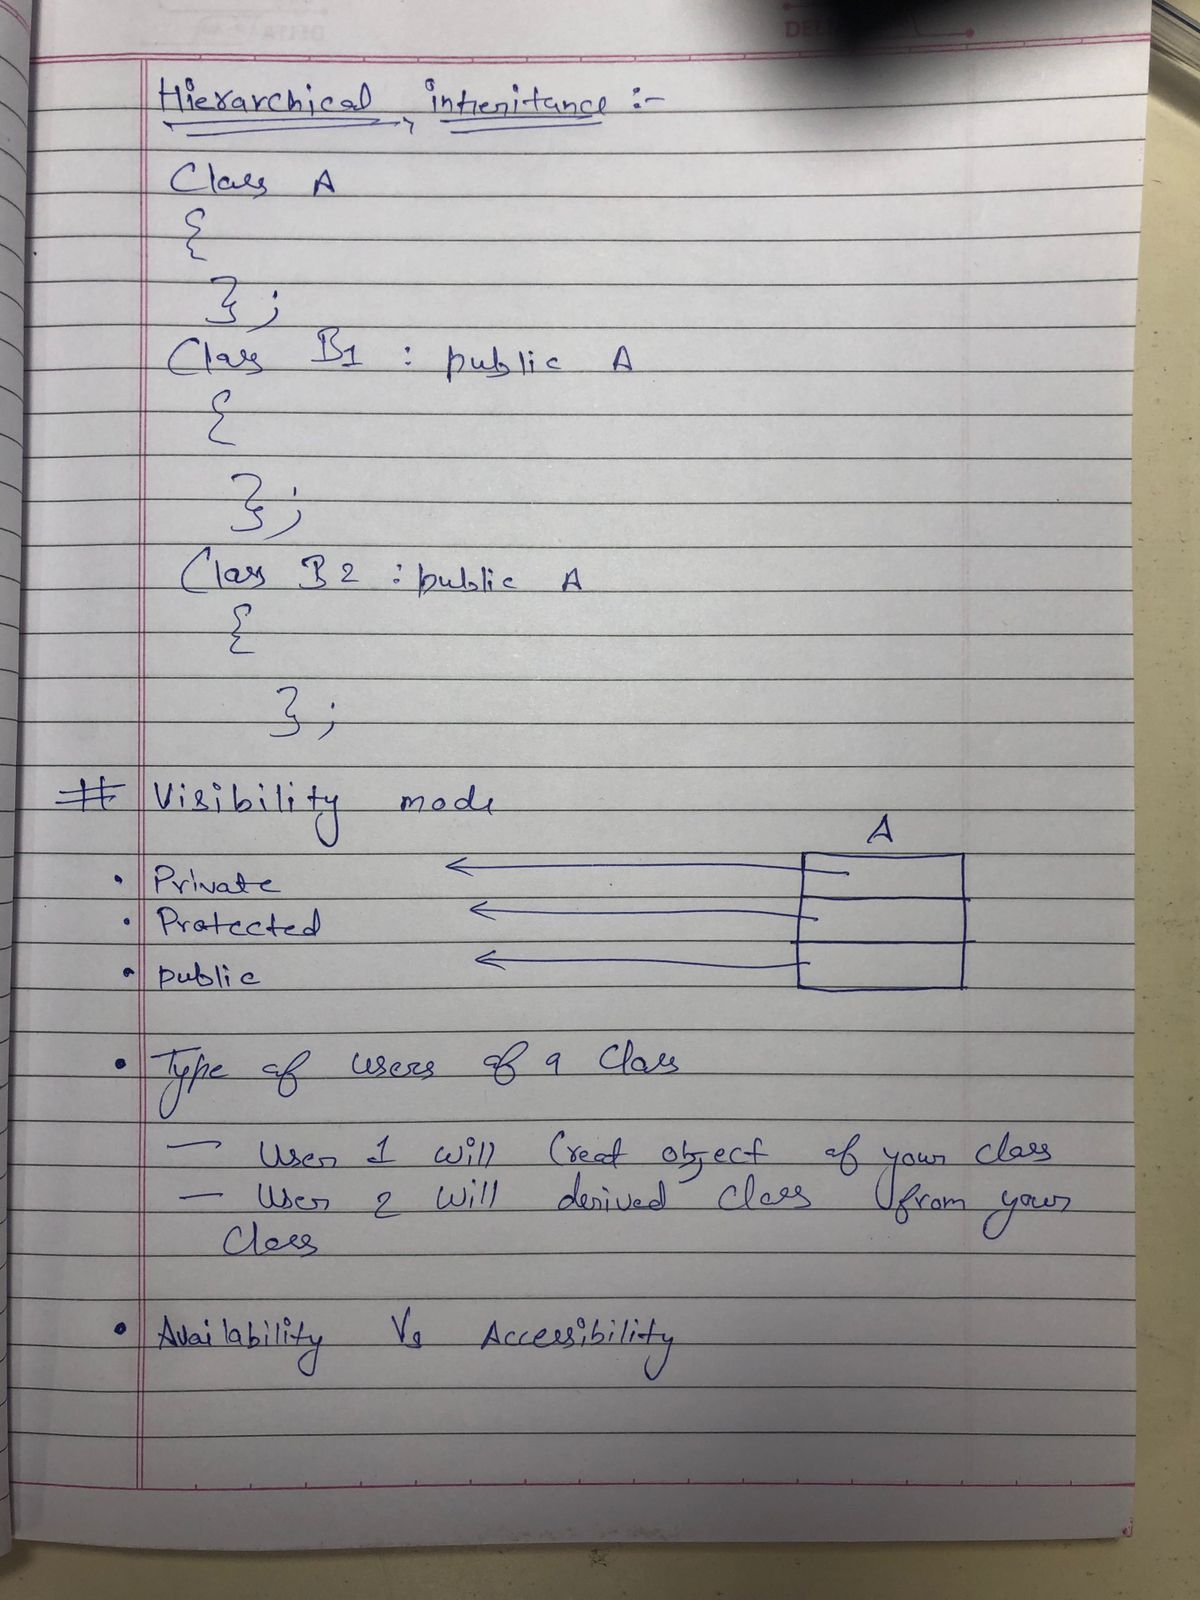 Hierarchical inheritance :-
Class A
{
};
Class B1 : public A
{
};
Class B2 : public A
{
};
# Visibility mode
A
• Private
• Protected
• public
• Type of users of a Class
— User 1 will Creat object of your class
— User 2 will derived class from your
Class
• Availability Vs Accessibility